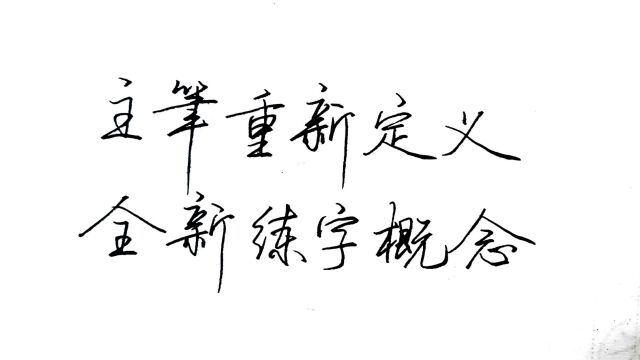 主筆重新定义
全新练字概念